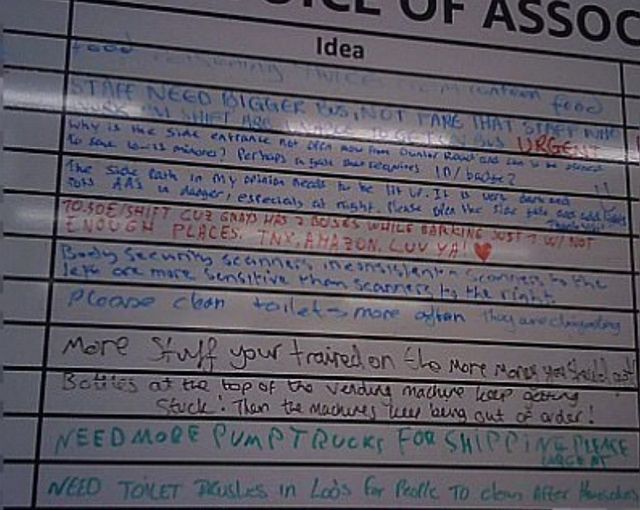 OICE OF ASSOC
Idea
food canteen food
STAFF NEED BIGGER BUS, NOT FARE THAT STAFF WHO
WORK ON SHIFT ARE TO GET ON BUS URGENT
Why is the side entrance not open now from Dunlor Road and can to be opened
to save 10-15 minutes? Perhaps a gate that requires ID/badge?
The side path in my opinion needs to be lit up. It is very dark and
puts AAs in danger, especialy at night. Please open the side gate and add lights
Thank you!
TO JOE/SHIFT CUZ GRAYS HAS 2 BUSES WHILE BARKING JUST 1 W/ NOT
ENOUGH PLACES. TNX, AMAZON. LUV YA!
Body Security scanners inconsistent - scanners to the
left are more sensitive than scanners to the right
Please clean toilets more often they are disgusting
More Stuff your trained on the More Money you should get
Bottles at the top of the vending machine keep getting
stuck! Then the machines keep being out of order!
NEED MORE PUMP TRUCKS FOR SHIPPING PLEASE
URGENT
NEED TOILET Brushes in Loo's For People To clean After themselves